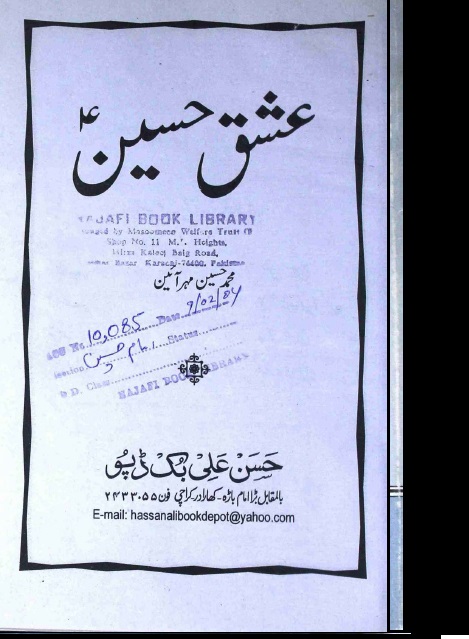 عشق حسین ؑ
NAJAFI BOOK LIBRARY
Managed by Masoomeen Welfare Trust (R
Shop No. 11 M.L. Heights,
Mirza Kaleej Baig Road,
Soldier Bazar Karachi-74400. Pakistan
محمد حسین مہر آئین
ACC No. 10,085 Date 9/02/04
Section امام حسین Status
D.D. Class
NAJAFI BOOK LIBRARY
حَسَن عَلی بُک ڈپو
بالمقابل بڑا امام باڑہ۔ کھارادر کراچی فون ۲۴۳۳۰۵۵
E-mail: hassanalibookdepot@yahoo.com